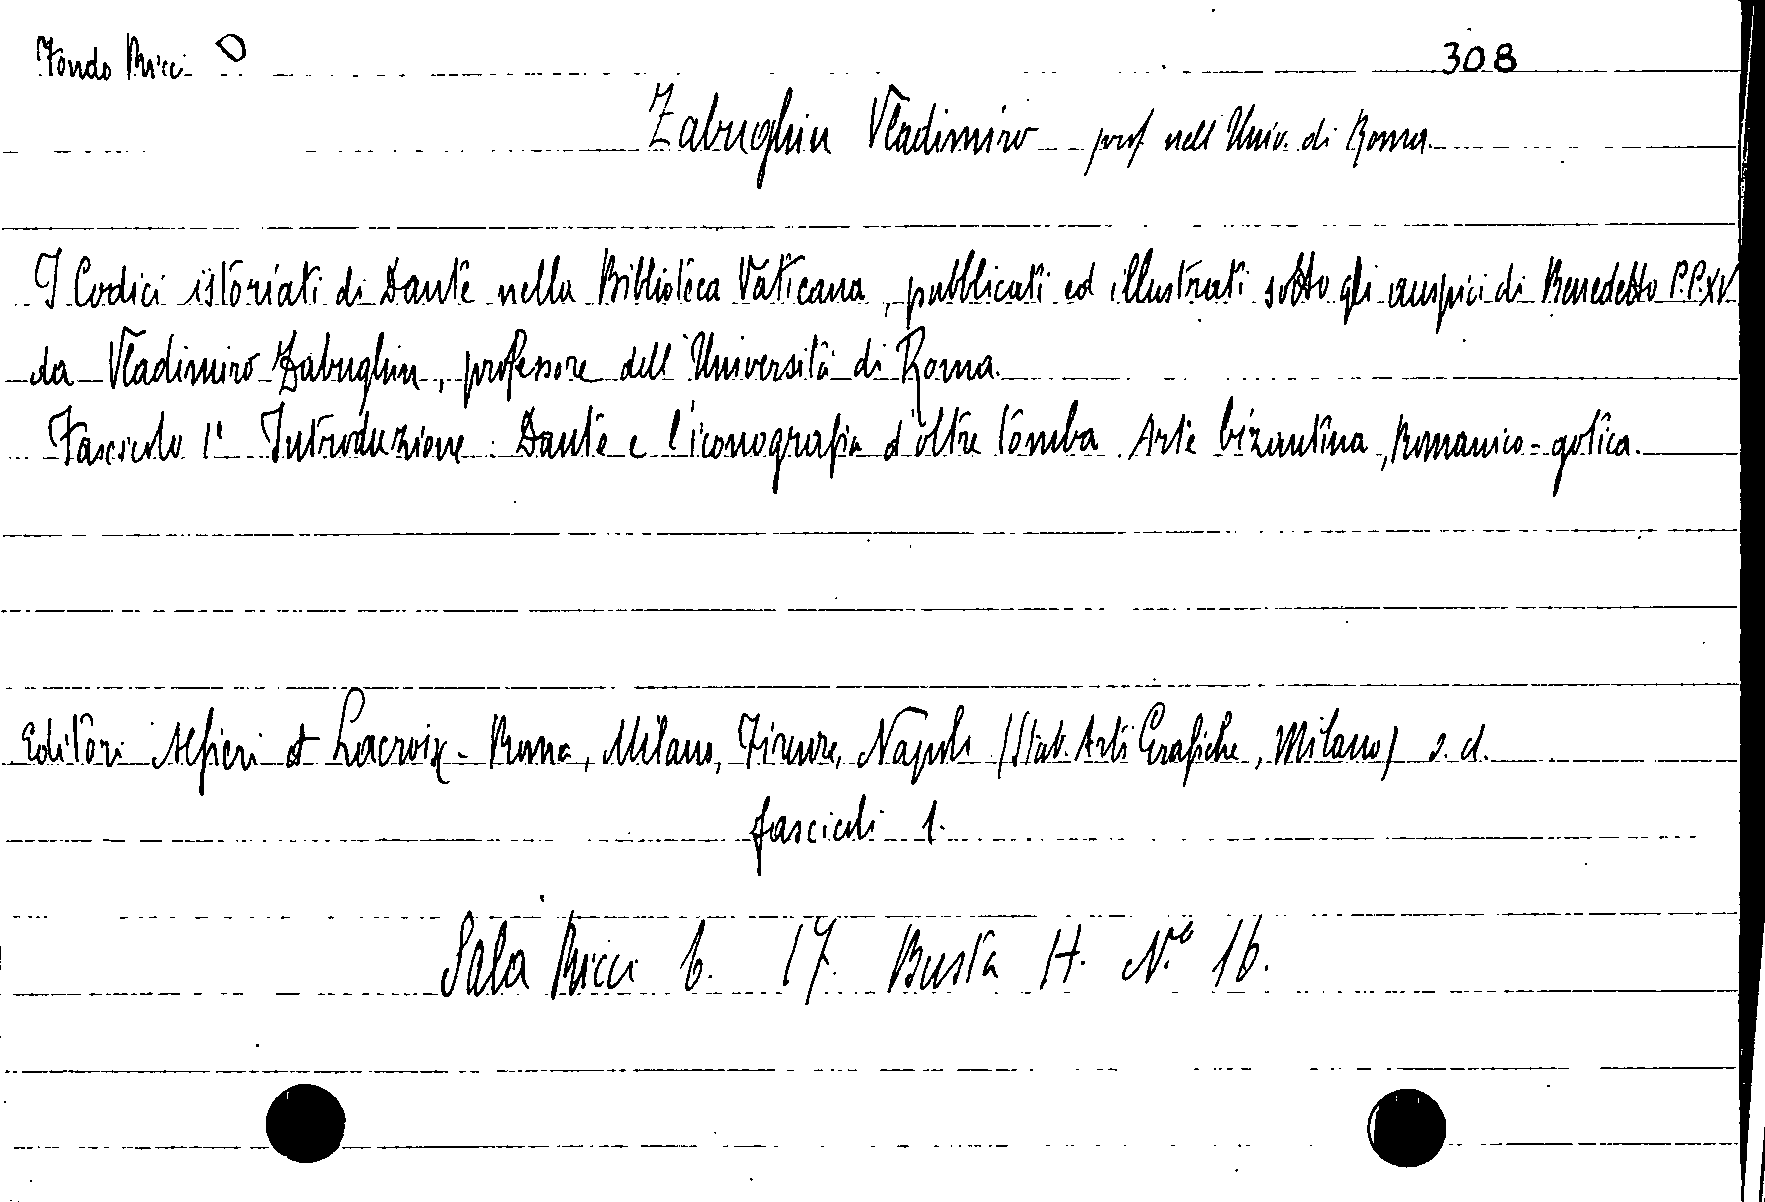 Fondo Ricci D 308
Zabughin Vladimiro prof nell'Univ. di Roma.
I Codici istoriati di Dante nella Biblioteca Vaticana, pubblicati ed illustrati sotto gli auspici di Benedetto P.P. XV
da Vladimiro Zabughin, professore dell'Università di Roma.
Fascicolo 1° Introduzione: Dante e l'iconografia d'oltre tomba. Arte bizantina, Romanico-gotica.
Editori Alfieri & Lacroix - Roma, Milano, Firenze, Napoli (Stab. Arti Grafiche, Milano) s. d.
fascicoli 1.
Sala Ricci 6. 17. Busta H. N.° 16.